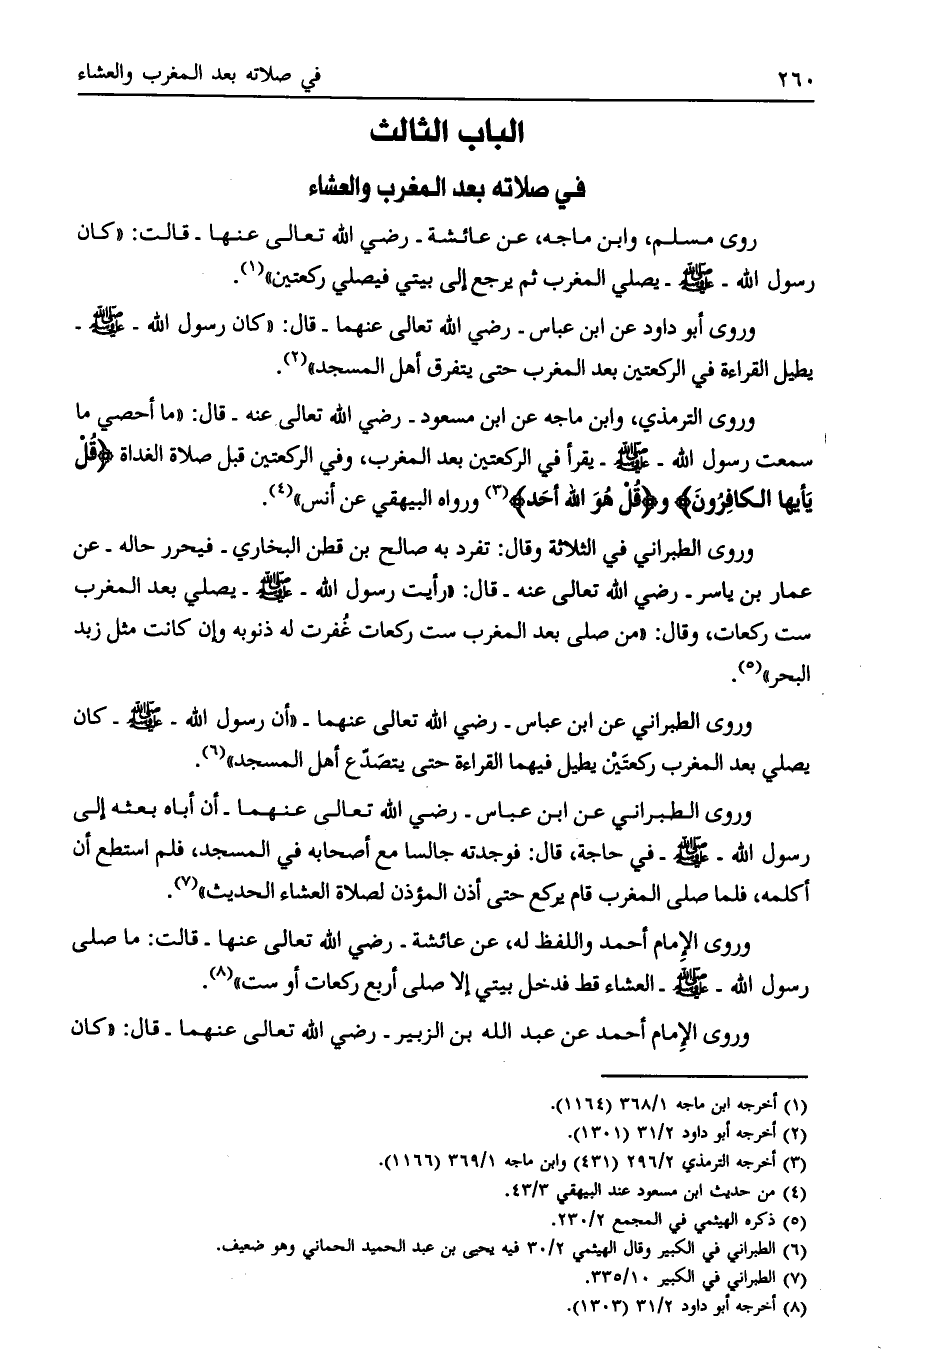 ٢٦٠ في صلاته بعد المغرب والعشاء
الباب الثالث
في صلاته بعد المغرب والعشاء
روى مسلم، وابن ماجه، عن عائشة ـ رضي الله تعالى عنها ـ قالت: «كان
رسول الله ـ ﷺ ـ يصلي المغرب ثم يرجع إلى بيتي فيصلي ركعتين»(١).
وروى أبو داود عن ابن عباس ـ رضي الله تعالى عنهما ـ قال: «كان رسول الله ـ ﷺ ـ
يطيل القراءة في الركعتين بعد المغرب حتى يتفرق أهل المسجد»(٢).
وروى الترمذي، وابن ماجه عن ابن مسعود ـ رضي الله تعالى عنه ـ قال: «ما أحصي ما
سمعت رسول الله ـ ﷺ ـ يقرأ في الركعتين بعد المغرب، وفي الركعتين قبل صلاة الغداة ﴿قُلْ
يَأيها الكافِرُونَ﴾ و﴿قُلْ هُوَ الله أحَد﴾(٣) ورواه البيهقي عن أنس»(٤).
وروى الطبراني في الثلاثة وقال: تفرد به صالح بن قطن البخاري ـ فيحرر حاله ـ عن
عمار بن ياسر ـ رضي الله تعالى عنه ـ قال: «رأيت رسول الله ـ ﷺ ـ يصلي بعد المغرب
ست ركعات، وقال: «من صلى بعد المغرب ست ركعات غُفرت له ذنوبه وإن كانت مثل زبد
البحر»(٥).
وروى الطبراني عن ابن عباس ـ رضي الله تعالى عنهما ـ «أن رسول الله ـ ﷺ ـ كان
يصلي بعد المغرب ركعتَيْن يطيل فيهما القراءة حتى يتصَدّع أهل المسجد»(٦).
وروى الطبراني عن ابن عباس ـ رضي الله تعالى عنهما ـ أن أباه بعثه إلى
رسول الله ـ ﷺ ـ في حاجة، قال: فوجدته جالسا مع أصحابه في المسجد، فلم استطع أن
أكلمه، فلما صلى المغرب قام يركع حتى أذن المؤذن لصلاة العشاء الحديث»(٧).
وروى الإمام أحمد واللفظ له، عن عائشة ـ رضي الله تعالى عنها ـ قالت: ما صلى
رسول الله ـ ﷺ ـ العشاء قط فدخل بيتي إلا صلى أربع ركعات أو ست»(٨).
وروى الإمام أحمد عن عبد الله بن الزبير ـ رضي الله تعالى عنهما ـ قال: «كان
(١) أخرجه ابن ماجه ٣٦٨/١ (١١٦٤).
(٢) أخرجه أبو داود ٣١/٢ (١٣٠١).
(٣) أخرجه الترمذي ٢٩٦/٢ (٤٣١) وابن ماجه ٣٦٩/١ (١١٦٦).
(٤) من حديث ابن مسعود عند البيهقي ٤٣/٣.
(٥) ذكره الهيثمي في المجمع ٢٣٠/٢.
(٦) الطبراني في الكبير وقال الهيثمي ٣٠/٢ فيه يحيى بن عبد الحميد الحماني وهو ضعيف.
(٧) الطبراني في الكبير ٣٣٥/١٠.
(٨) أخرجه أبو داود ٣١/٢ (١٣٠٣).